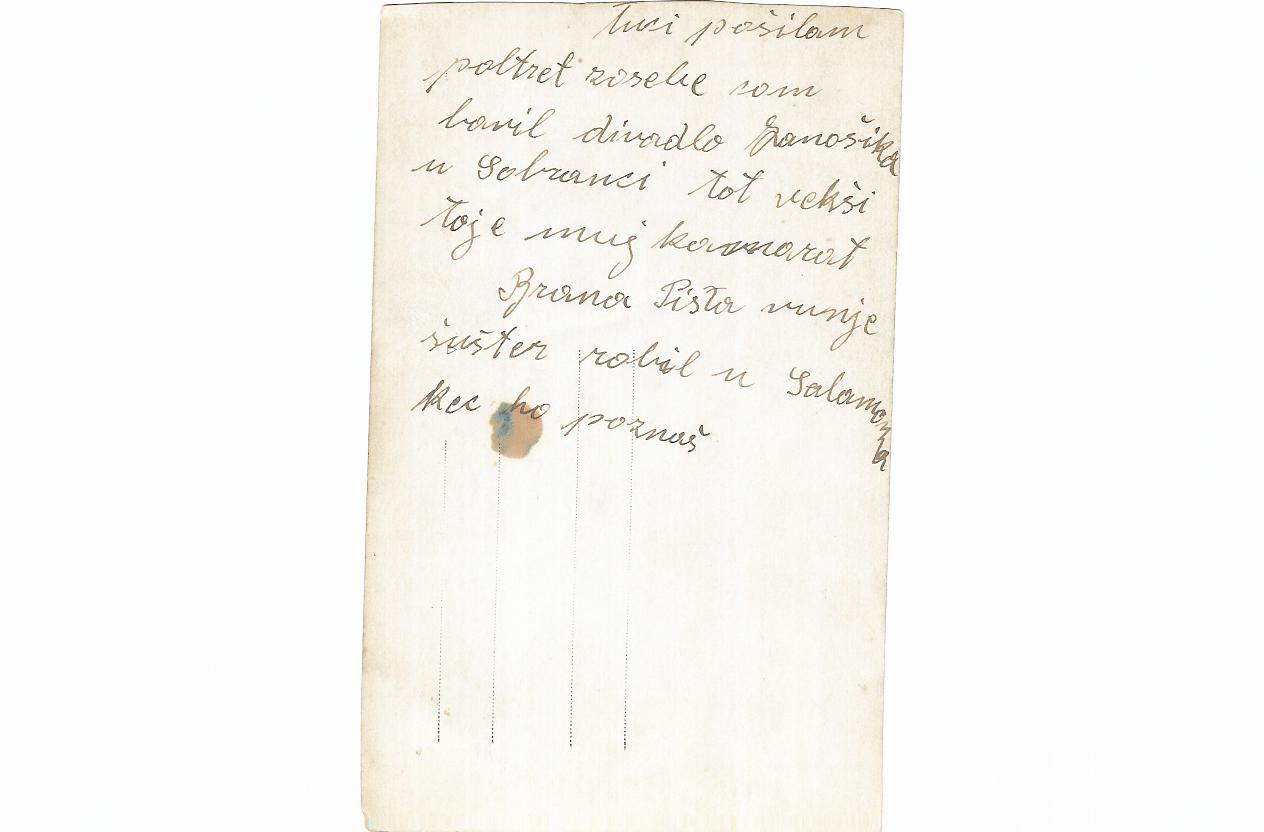 Tuci pošilam
poltret zosebe som
bavil divadlo Janošika
u Sobranci tot vekši
toje muj kamarat
Brana Pista vunje
šuster robil u Salamona
kec ho poznaš